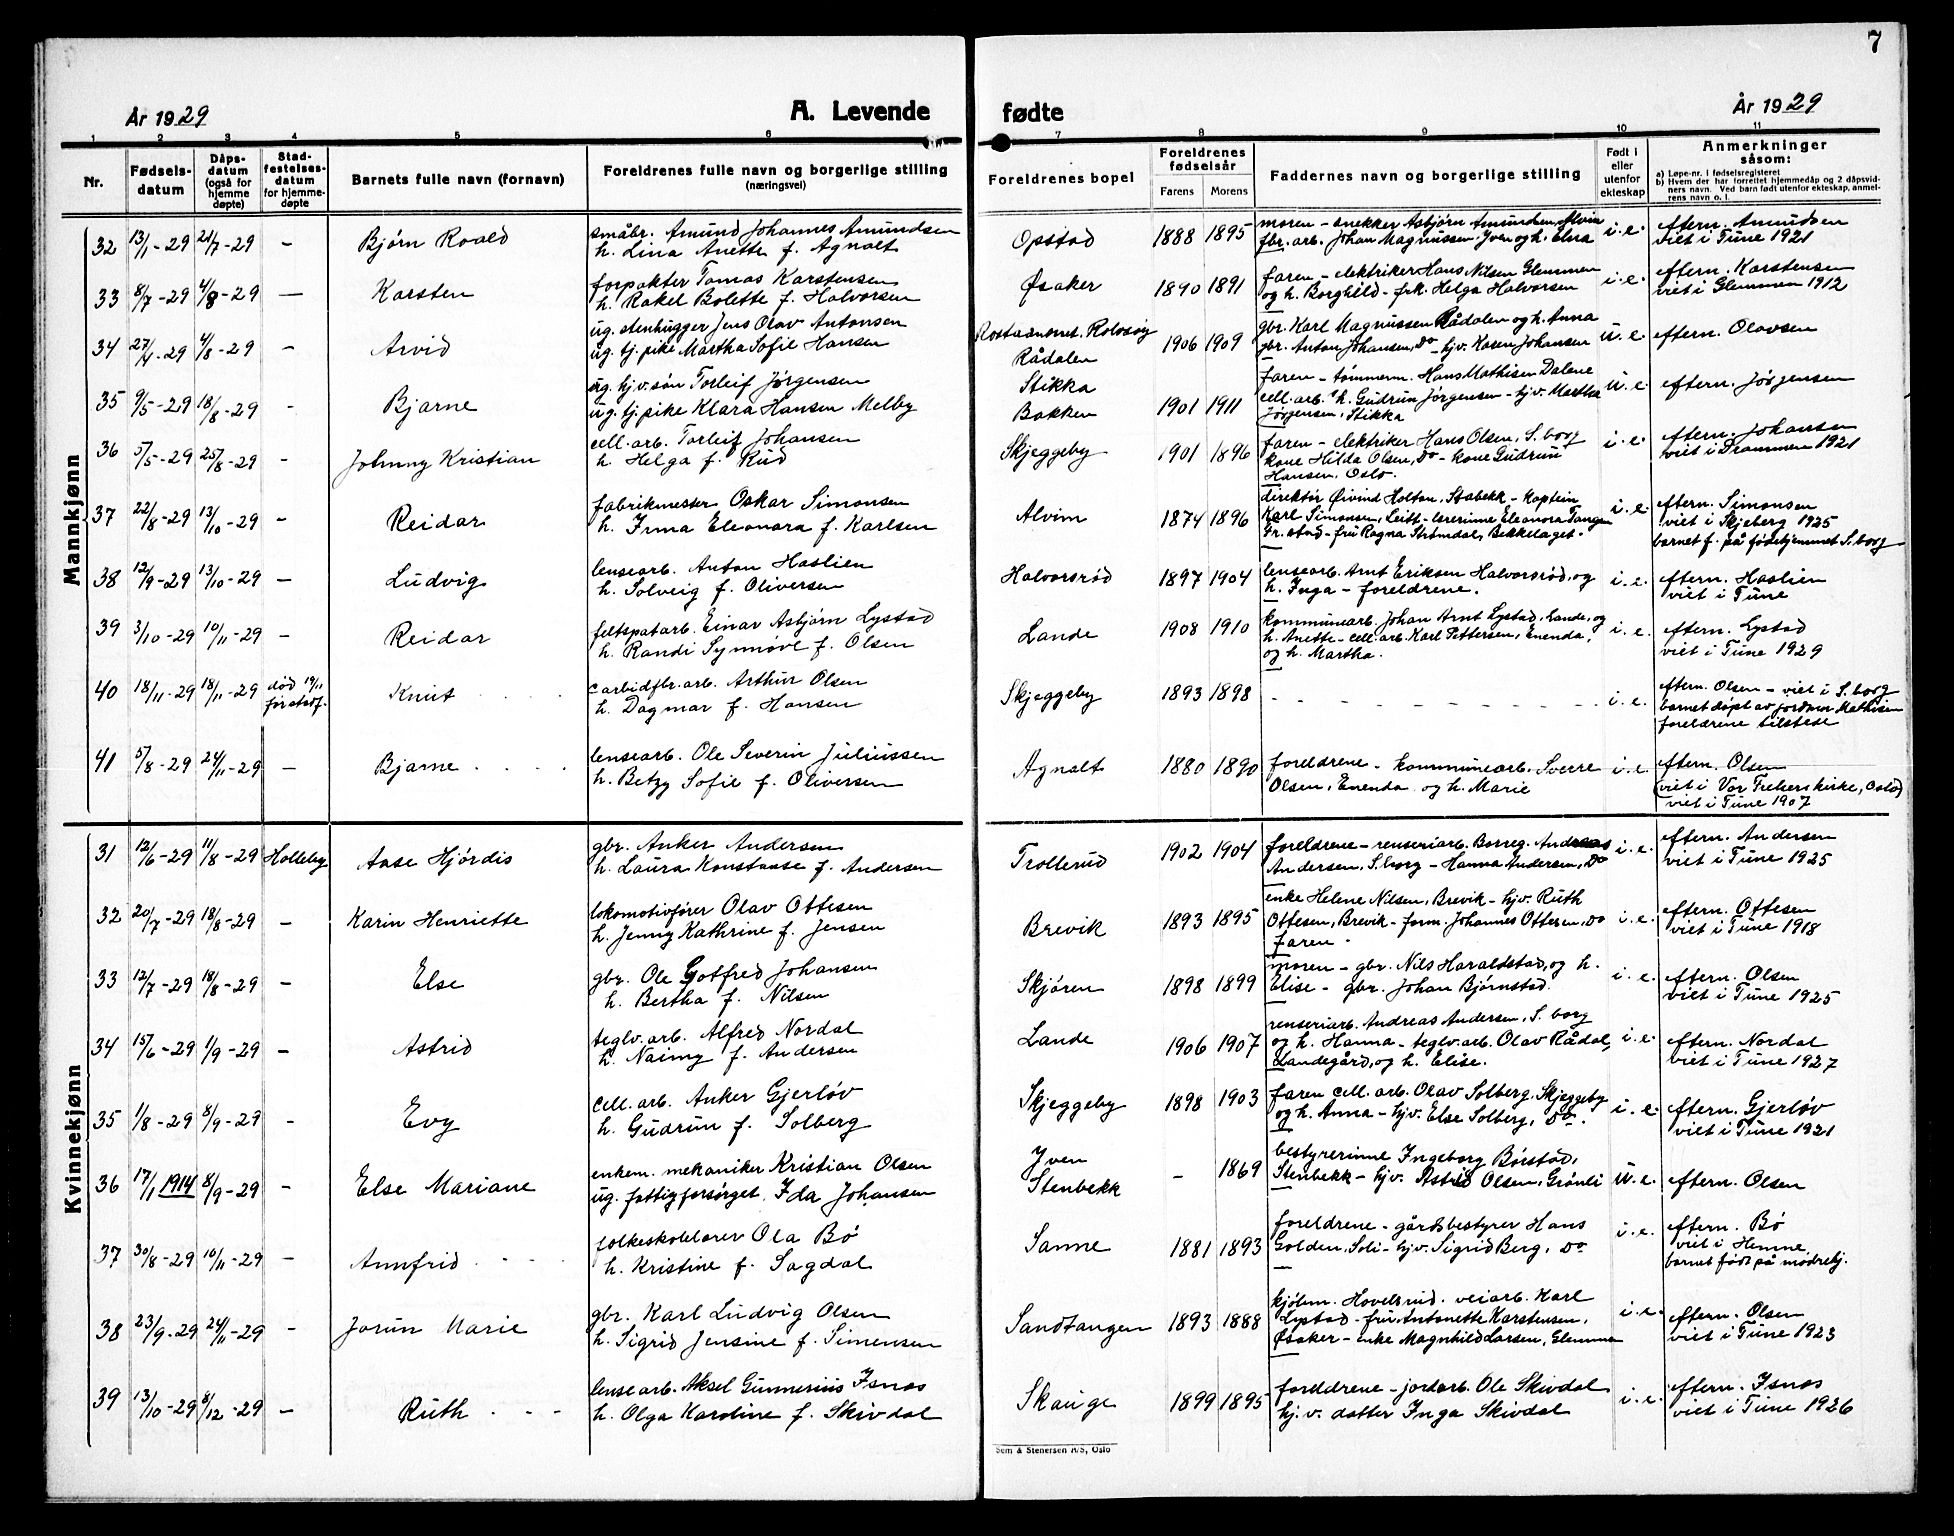 7
År 1929
A. Levende fødte
År 1929
1 2 3 4 5 6 7 8 9 10 11
Nr. | Fødsels-datum | Dåps-datum (også for hjemme døpte) | Stad-festelses-datum for hjemme-døpte | Barnets fulle navn (fornavn) | Foreldrenes fulle navn og borgerlige stilling (næringsvei) | Foreldrenes bopel | Foreldrenes fødselsår Farens Morens | Faddernes navn og borgerlige stilling | Født i eller utenfor ekteskap | Anmerkninger såsom: a) Løpe-nr. i fødselsregisteret b) Hvem der har forrettet hjemmedåp og 2 dåpsvidners navn. Ved barn født utenfor ekteskap, anmelrens navn o. l.
Mannkjønn
32 13/1-29 21/7-29 – Bjørn Roald
småbr. Amund Johannes Amundsen
h. Lina Anette f. Agnalt
Opstad 1888 1895
moren – snekker Asbjørn Amundsen, Alvim
fbr. arb. Johan Magnussen Yven og h. Elna
i. e. eftern. Amundsen
viet i Tune 1921
33 8/7-29 4/8-29 – Karsten
forpakter Tomas Karstensen
h. Rakel Bolette f. Halvorsen
Øsaker 1890 1891
faren – elektriker Hans Nilsen Glemmen
og h. Borghild – frk. Helga Halvorsen
i. e. eftern. Karstensen
viet i Glemmen 1912
34 27/4-29 4/8-29 – Arvid
ug. stenhugger Jens Olav Antonsen
ug. tj. pike Martha Sofie Hansen
Rolvsøy
Rådalen 1906 1909
gbr. Karl Magnussen Rådalen og h. Anna
gbr. Anton Johansen, Do – hjv. Karen Johansen
u. e. eftern. Olavsen
35 9/5-29 18/8-29 – Bjarne
ug. hjv. søn Torleif Jørgensen
ug. tj. pike Klara Hansen Melby
Stikka
Bakken 1901 1911
faren – tømmerm. Hans Mathisen Dalene
cell. arb. h. Gudrun Jørgensen – hjv. Martha
Jørgensen, Stikka
u. e. eftern. Jørgensen
36 5/5-29 25/8-29 – Johnny Kristian
cell. arb. Torleif Johansen
h. Helga f. Rud
Skjeggeby 1901 1896
faren – elektriker Hans Olsen, S. borg
kone Hilda Olsen, Do – kone Gudrun
Hansen, Oslo.
i. e. eftern. Johansen
viet i Drammen 1921
37 22/8-29 13/10-29 – Reidar
fabrikmester Oskar Simonsen
h. Irma Eleonora f. Karlsen
Alvim 1874 1896
direktør Øivind Holtan, Stabekk – kaptein
Karl Simonsen, – lærerinne Eleonora Tangen
Fr. stad – fru Ragna Strømdal, Bekkelaget.
i. e. eftern. Simonsen
viet i Skjeberg 1925
barnet f. på fødehjemmet S. borg
38 12/9-29 13/10-29 – Ludvig
lensearb. Anton Haslien
h. Solveig f. Oliversen
Halvorsrød 1897 1904
lensearb. Arnt Eriksen Halvorsrød, og
h. Inga – foreldrene.
i. e. eftern. Haslien
viet i Tune
39 3/10-29 10/11-29 – Reidar
feltspatarb. Einar Asbjørn Lystad
h. Randi Synnøve f. Olsen
Lande 1908 1910
kommunearb. Johan Arnt Lystad, Lande, og
h. Anette – cell. arb. Karl Pettersen, Enenda,
og h. Martha.
i. e. eftern. Lystad
viet i Tune 1929
40 18/11-29 18/11-29 død 19/11 før stadf. Knut
carbidfbr. arb. Arthur Olsen
h. Dagmar f. Hansen
Skjeggeby 1893 1898 – – – – – – – – – –
i. e. eftern. Olsen – viet i S. borg
barnet døpt av jordmor Mathisen
foreldrene tilstede
41 5/8-29 24/11-29 – Bjarne
lensearb. Ole Severin Juliussen
h. Betzy Sofie f. Oliversen
Agnalt 1880 1890
foreldrene – kommunearb. Sverre
Olsen, Enenda og h. Marie
i. e. eftern. Olsen
(viet i Vor Frelsers kirke, Oslo)
viet i Tune 1907
Kvinnekjønn
31 12/6-29 11/8-29 Holleby Aase Hjørdis
gbr. Anker Andersen
h. Laura Konstanse f. Andersen
Trollerud 1902 1904
foreldrene – renseriarb. Borreg. Andreas
Andersen, S. borg – Hanna Andersen, Do
i. e. eftern. Andersen
viet i Tune 1925
32 20/7-29 18/8-29 – Karin Henriette
lokomotivfører Olav Ottesen
h. Jenny Kathrine f. Jensen
Brevik 1893 1895
enke Helene Nilsen, Brevik – hjv. Ruth
Ottesen, Brevik – form. Johannes Ottesen, Do
faren.
i. e. eftern. Ottesen
viet i Tune 1918
33 12/7-29 18/8-29 – Else
gbr. Ole Gotfred Johansen
h. Bertha f. Nilsen
Skjøren 1898 1899
moren – gbr. Nils Haraldstad, og h.
Elise – gbr. Johan Bjørnstad.
i. e. eftern. Olsen
viet i Tune 1925
34 15/6-29 1/9-29 – Astrid
teglv. arb. Alfred Nordal
h. Naimy f. Andersen
Lande 1906 1907
renseriarb. Andreas Andersen, S. borg
og h. Hanna – teglv. arb. Olav Rådal,
Landegård, og h. Elise.
i. e. eftern. Nordal
viet i Tune 1927
35 1/8-29 8/9-29 – Evy
cell. arb. Anker Gjerløv
h. Gudrun f. Solberg
Skjeggeby 1898 1903
faren cell. arb. Olav Solberg, Skjeggeby
og h. Anna – hjv. Else Solberg, Do.
i. e. eftern. Gjerløv
viet i Tune 1921
36 17/1 1914 8/9-29 – Else Mariane
enkem. mekaniker Kristian Olsen
ug. fattigforsørget, Ida Johansen
Yven
Stenbekk – 1869
bestyrerinne Ingeborg Børstad,
Stenbekk – hjv. Astrid Olsen, Grønli
u. e. eftern. Olsen
37 30/8-29 10/11-29 – Annfrid
folkeskolelærer Ola Bø
h. Kristine f. Sagdal
Sanne 1881 1893
foreldrene – gårdsbestyrer Hans
Golden, Soli – hjv. Sigrid Berg, Do
i. e. eftern. Bø
viet i Hemne
barnet født på mødrehj.
38 23/9-29 24/11-29 – Jorun Marie
gbr. Karl Ludvig Olsen
h. Sigrid Jensine f. Simensen
Sandtangen 1893 1888
kjøbm. Hovelsrud. veiarb. Karl
Lystad – fru Antonette Karstensen,
Øsaker – enke Magnhild Larsen, Glemmen
i. e. eftern. Olsen
viet i Tune 1923
39 13/10-29 8/12-29 – Ruth
lensearb. Aksel Gunnerius Isnes
h. Olga Karoline f. Skivdal
Skauge 1899 1895
foreldrene – jordarb. Ole Skivdal
hj. v. datter Inga Skivdal
i. e. eftern. Isnes
viet i Tune 1926
Sem & Stenersen A/S, Oslo